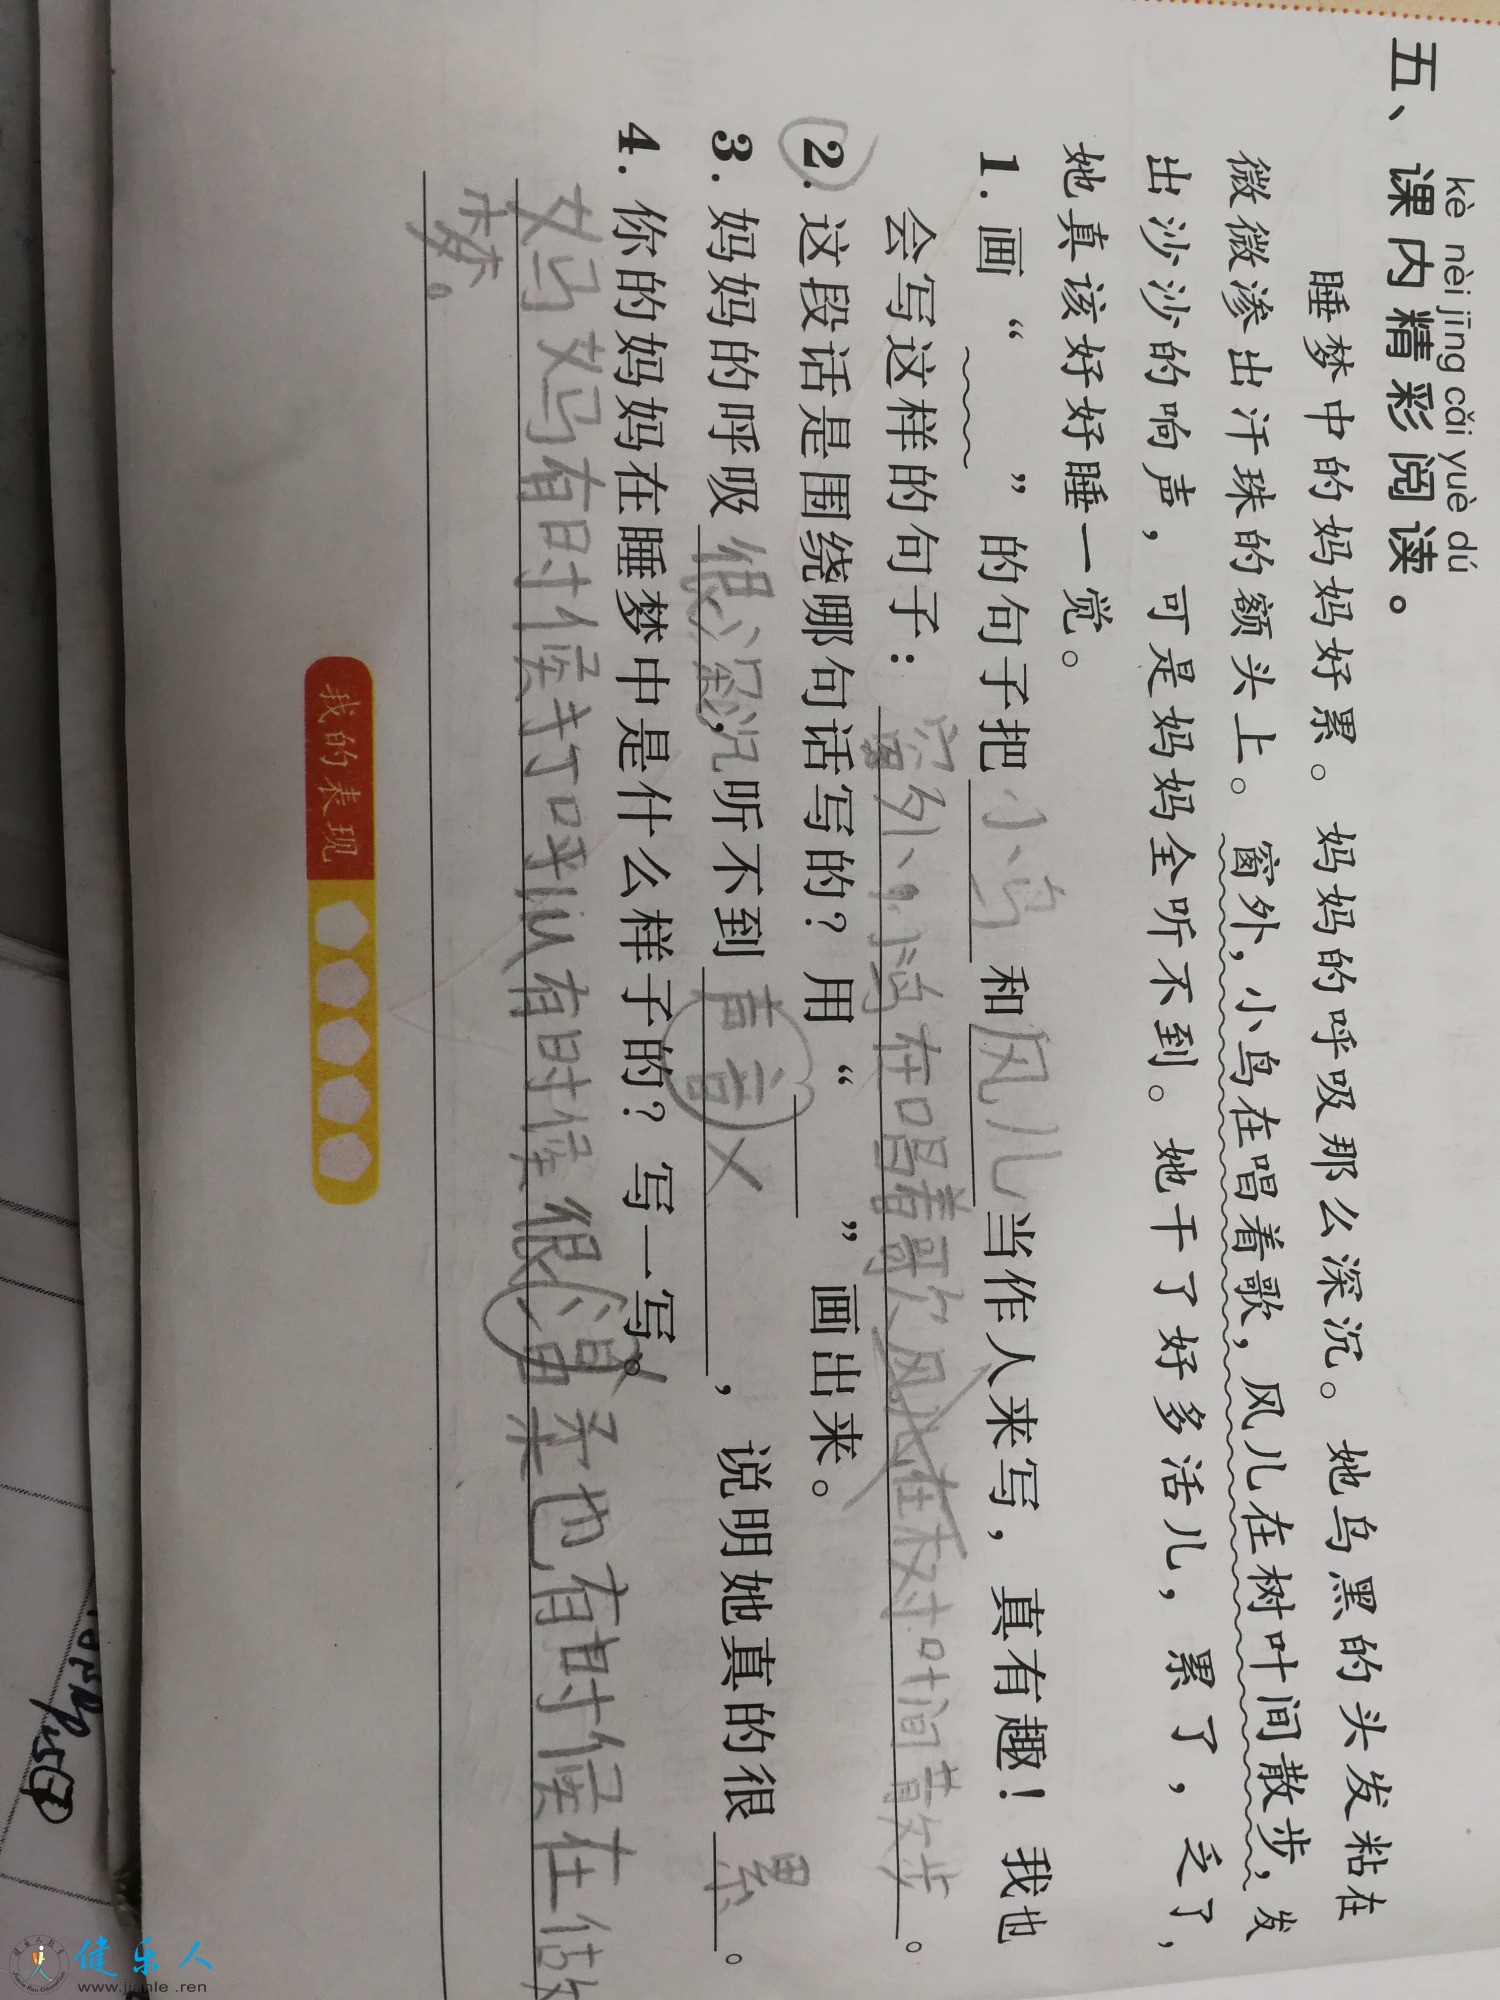 kè nèi jīng cǎi yuè dú
五、课内精彩阅读。
睡梦中的妈妈好累。妈妈的呼吸那么深沉。她乌黑的头发粘在
微微渗出汗珠的额头上。窗外，小鸟在唱着歌，风儿在树叶间散步，发
出沙沙的响声，可是妈妈全听不到。她干了好多活儿，累了，乏了，
她真该好好睡一觉。
1.画“ ”的句子把小鸟和风儿当作人来写，真有趣！我也
会写这样的句子：窗外，小鸟在唱着歌风儿在树叶间散步。
2.这段话是围绕哪句话写的？用“ ”画出来。
3.妈妈的呼吸很深沉，听不到声音，说明她真的很累。
4.你的妈妈在睡梦中是什么样子的？写一写。
妈妈有时候打呼认有时候很温柔也有时候在做
梦。
我的表现
健乐人
www.jianle.ren